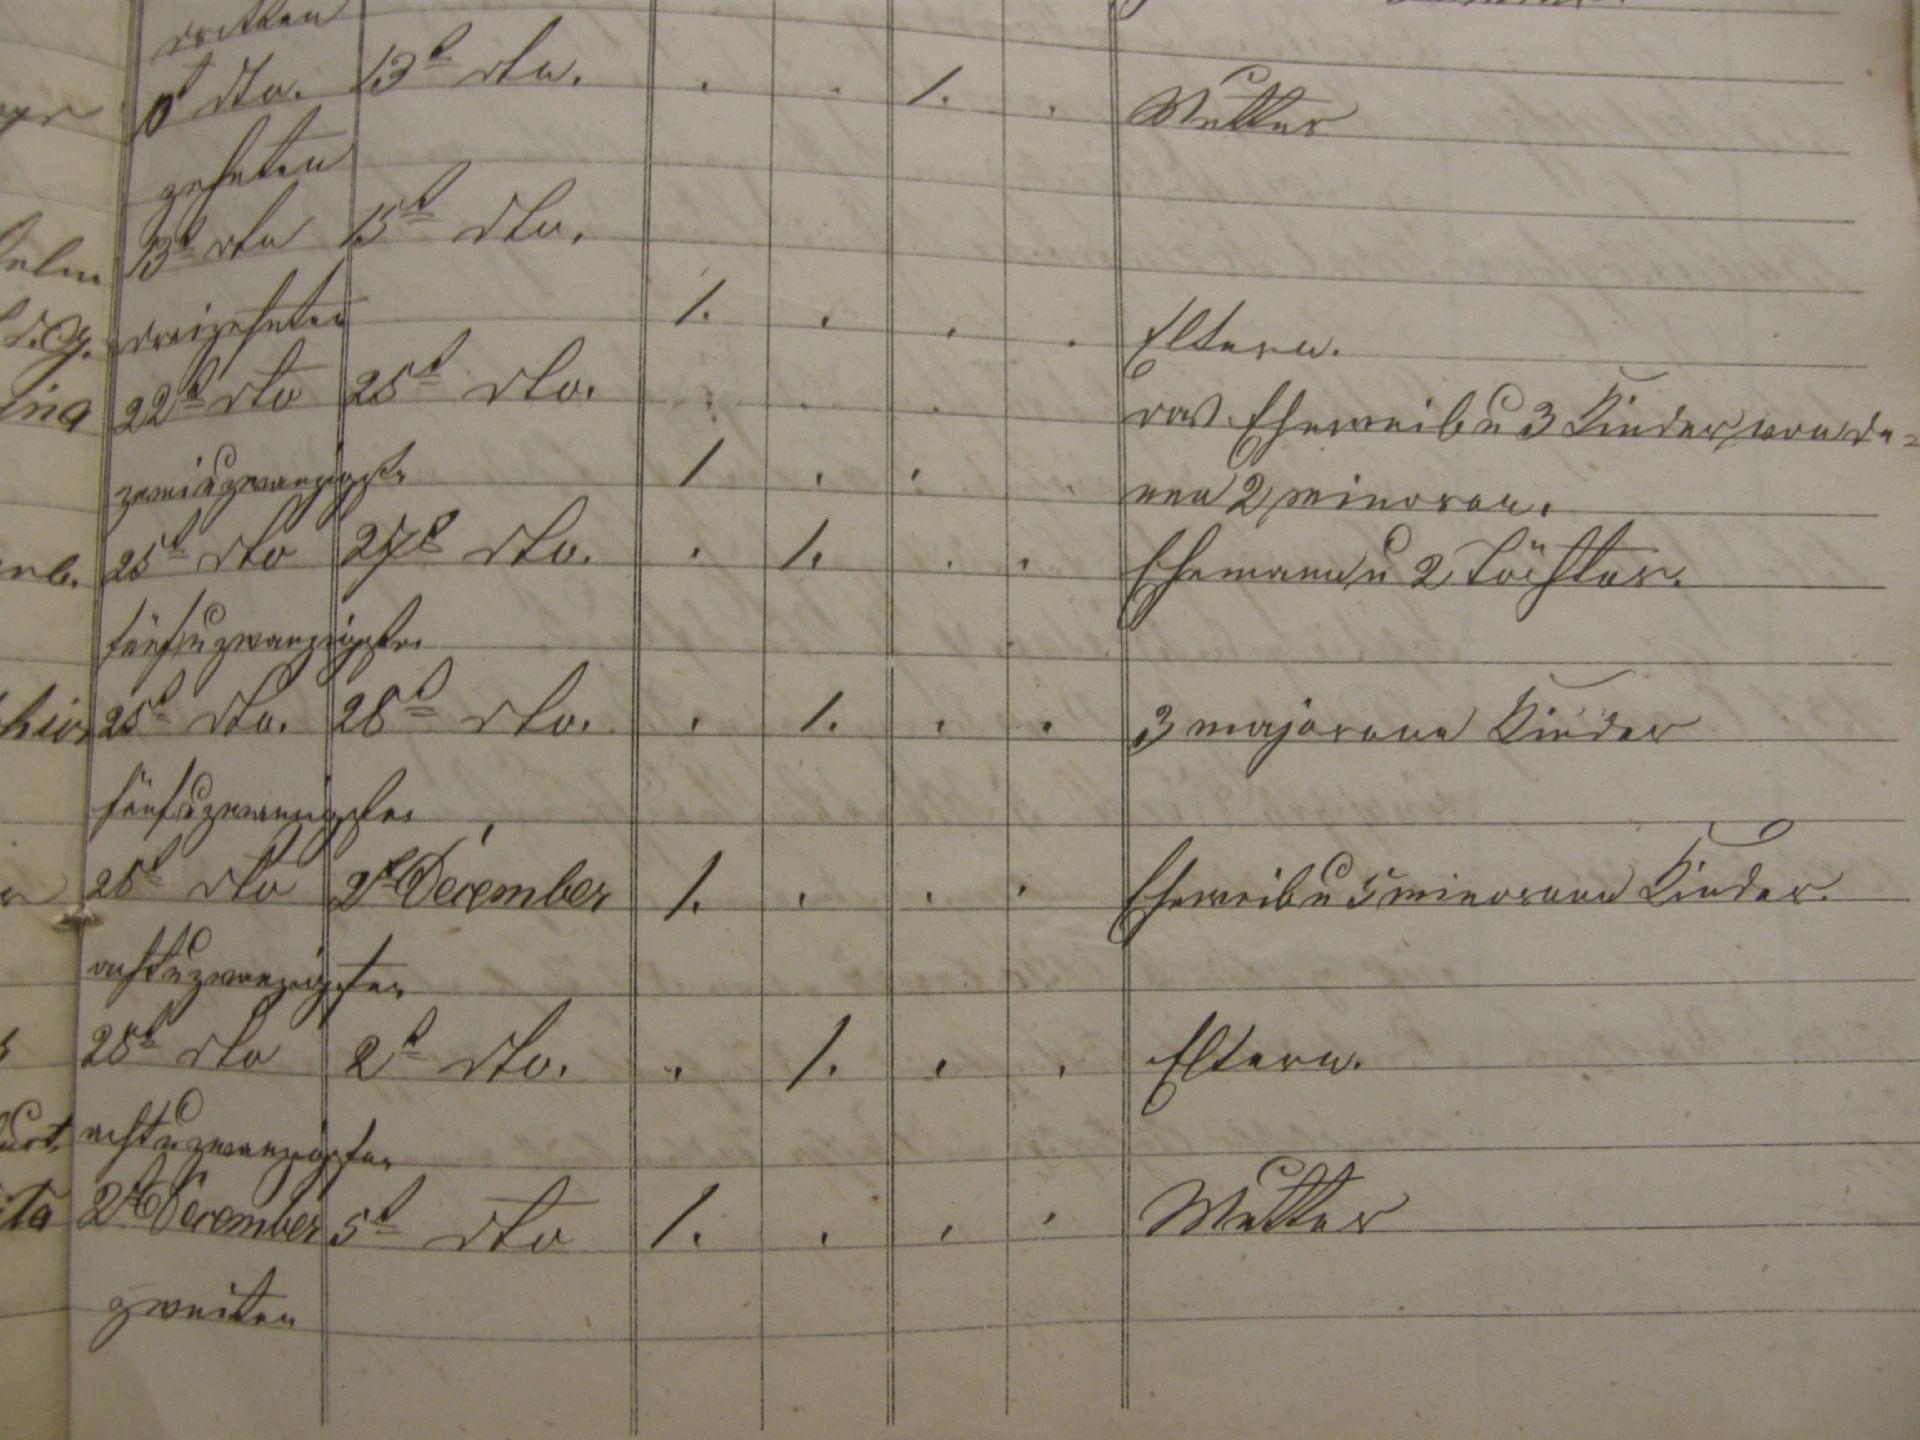 dritten
10t dto. 13t dto. . . 1. . Mutter
zehnten
13t dto 15t dto.
dreizehnten 1. . . . Eltern.
22t dto 25t dto. . . . das Eheweib u 3 Kinder, von de=
zweiuzwanzigste 1 . . . nen 2 minoren.
25t dto 27t dto. . 1. . . Ehemann u 2 Töchter.
fünfuzwanzigsten
25t dto. 28t dto. . 1. . . 3 majorene Kinder
fünfuzwanzigsten
28t dto 2t December 1. . . . Eheweib u 5 minorene Kinder.
achtuzwanzigsten
28t dto 2t dto. . 1. . . Eltern.
achtuzwanzigsten
2t December 5t dto 1. . . . Mutter
zweiten